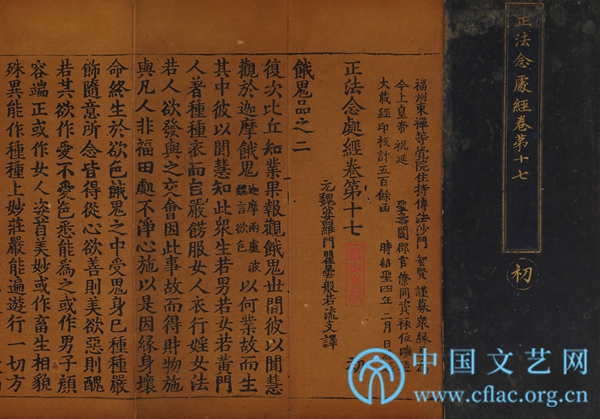 正法念處經卷第十七
初
福州東禪等覺院住持傳法沙門 智賢 謹募衆緣
今上皇帝 祝延 聖壽國郡官僚同資祿位雕造
大藏經印板計五百餘函 時紹聖四年二月 日
正法念處經卷第十七 初
元魏婆羅門瞿曇般若流支譯
餓鬼品之二
復次比丘知業果報觀餓鬼世間彼以聞慧
觀於迦摩餓鬼迦摩兩盧波魏言欲色以何業故而生
其中彼以聞慧知此衆生若男若女若黃門
人著種種衣而自嚴飾服女人衣行婬女法
若人欲發與之交會因此事故而得財物施
與凡人非福田處不淨心施以是因緣身壞
命終生於欲色餓鬼之中受鬼身已種種嚴
飾隨意所念皆得從心欲善則美欲惡則醜
若其欲作愛不愛色悉能為之或作男子顏
容端正或作女人姿首美妙或作畜生相貌
殊異能作種種上妙莊嚴能遍遊行一切方
中国文艺网
www.cflac.org.cn